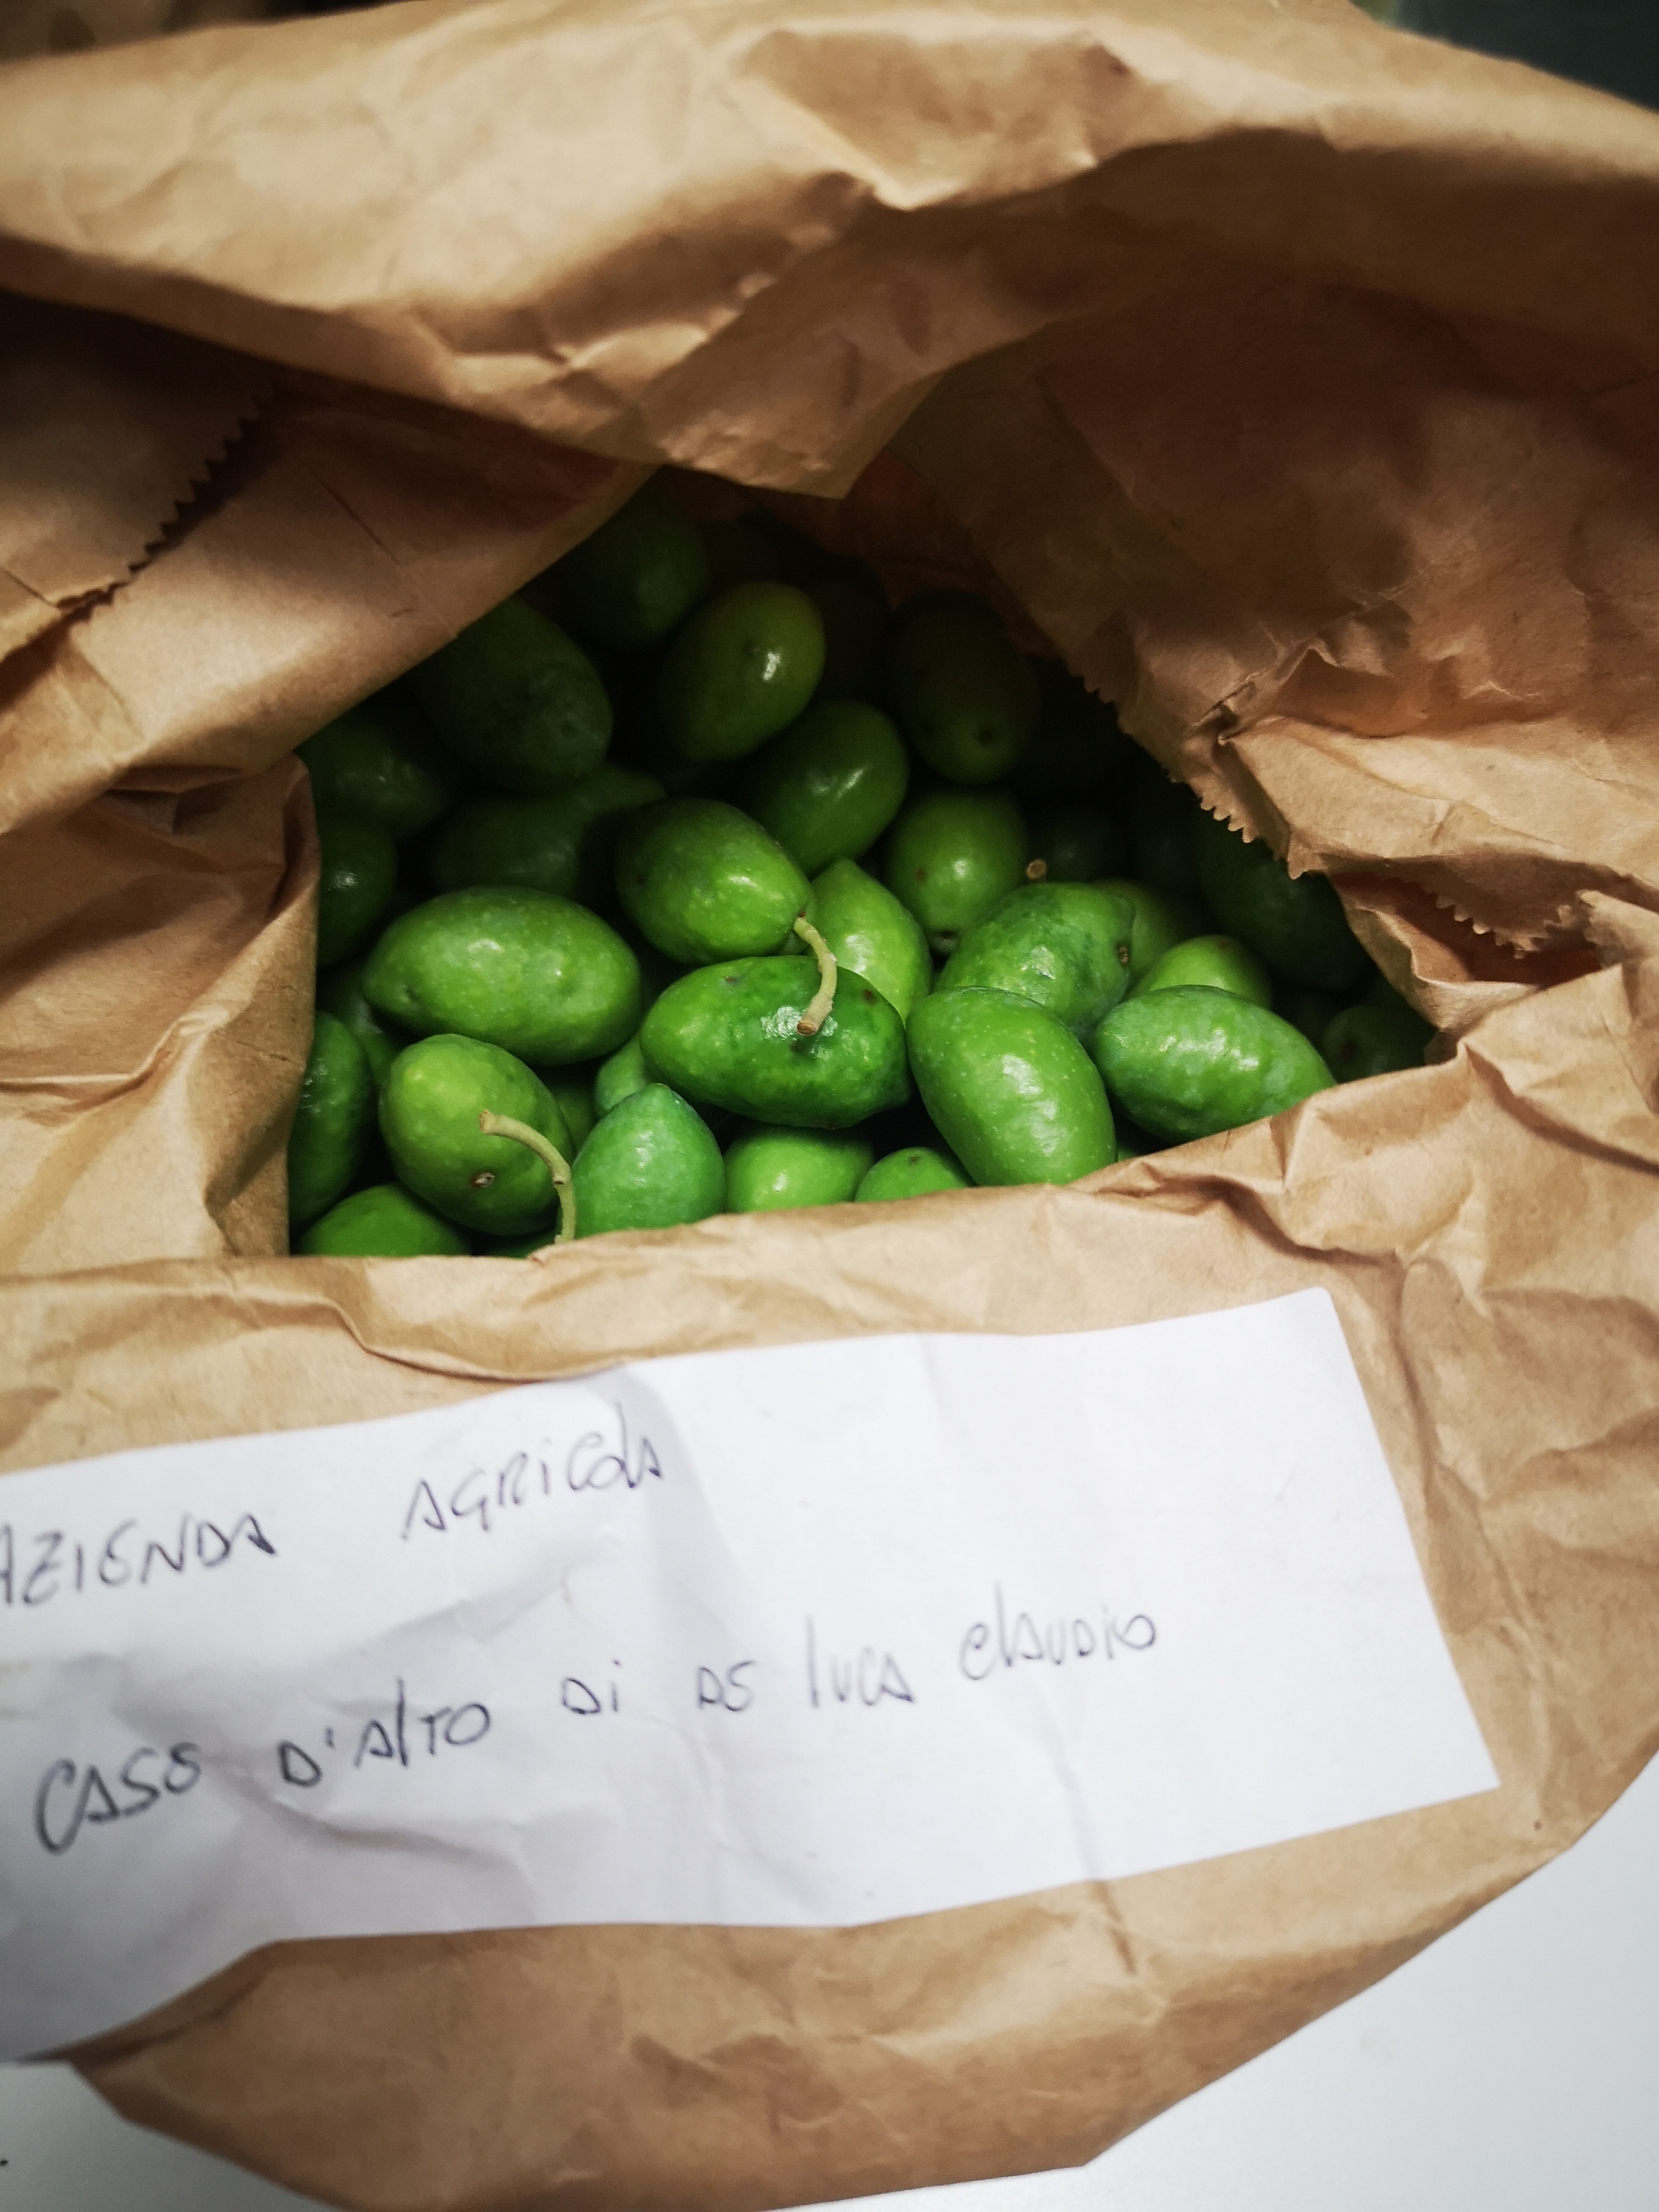 AZIENDA AGRICOLA
CASE D'ALTO DI DE LUCA CLAUDIO